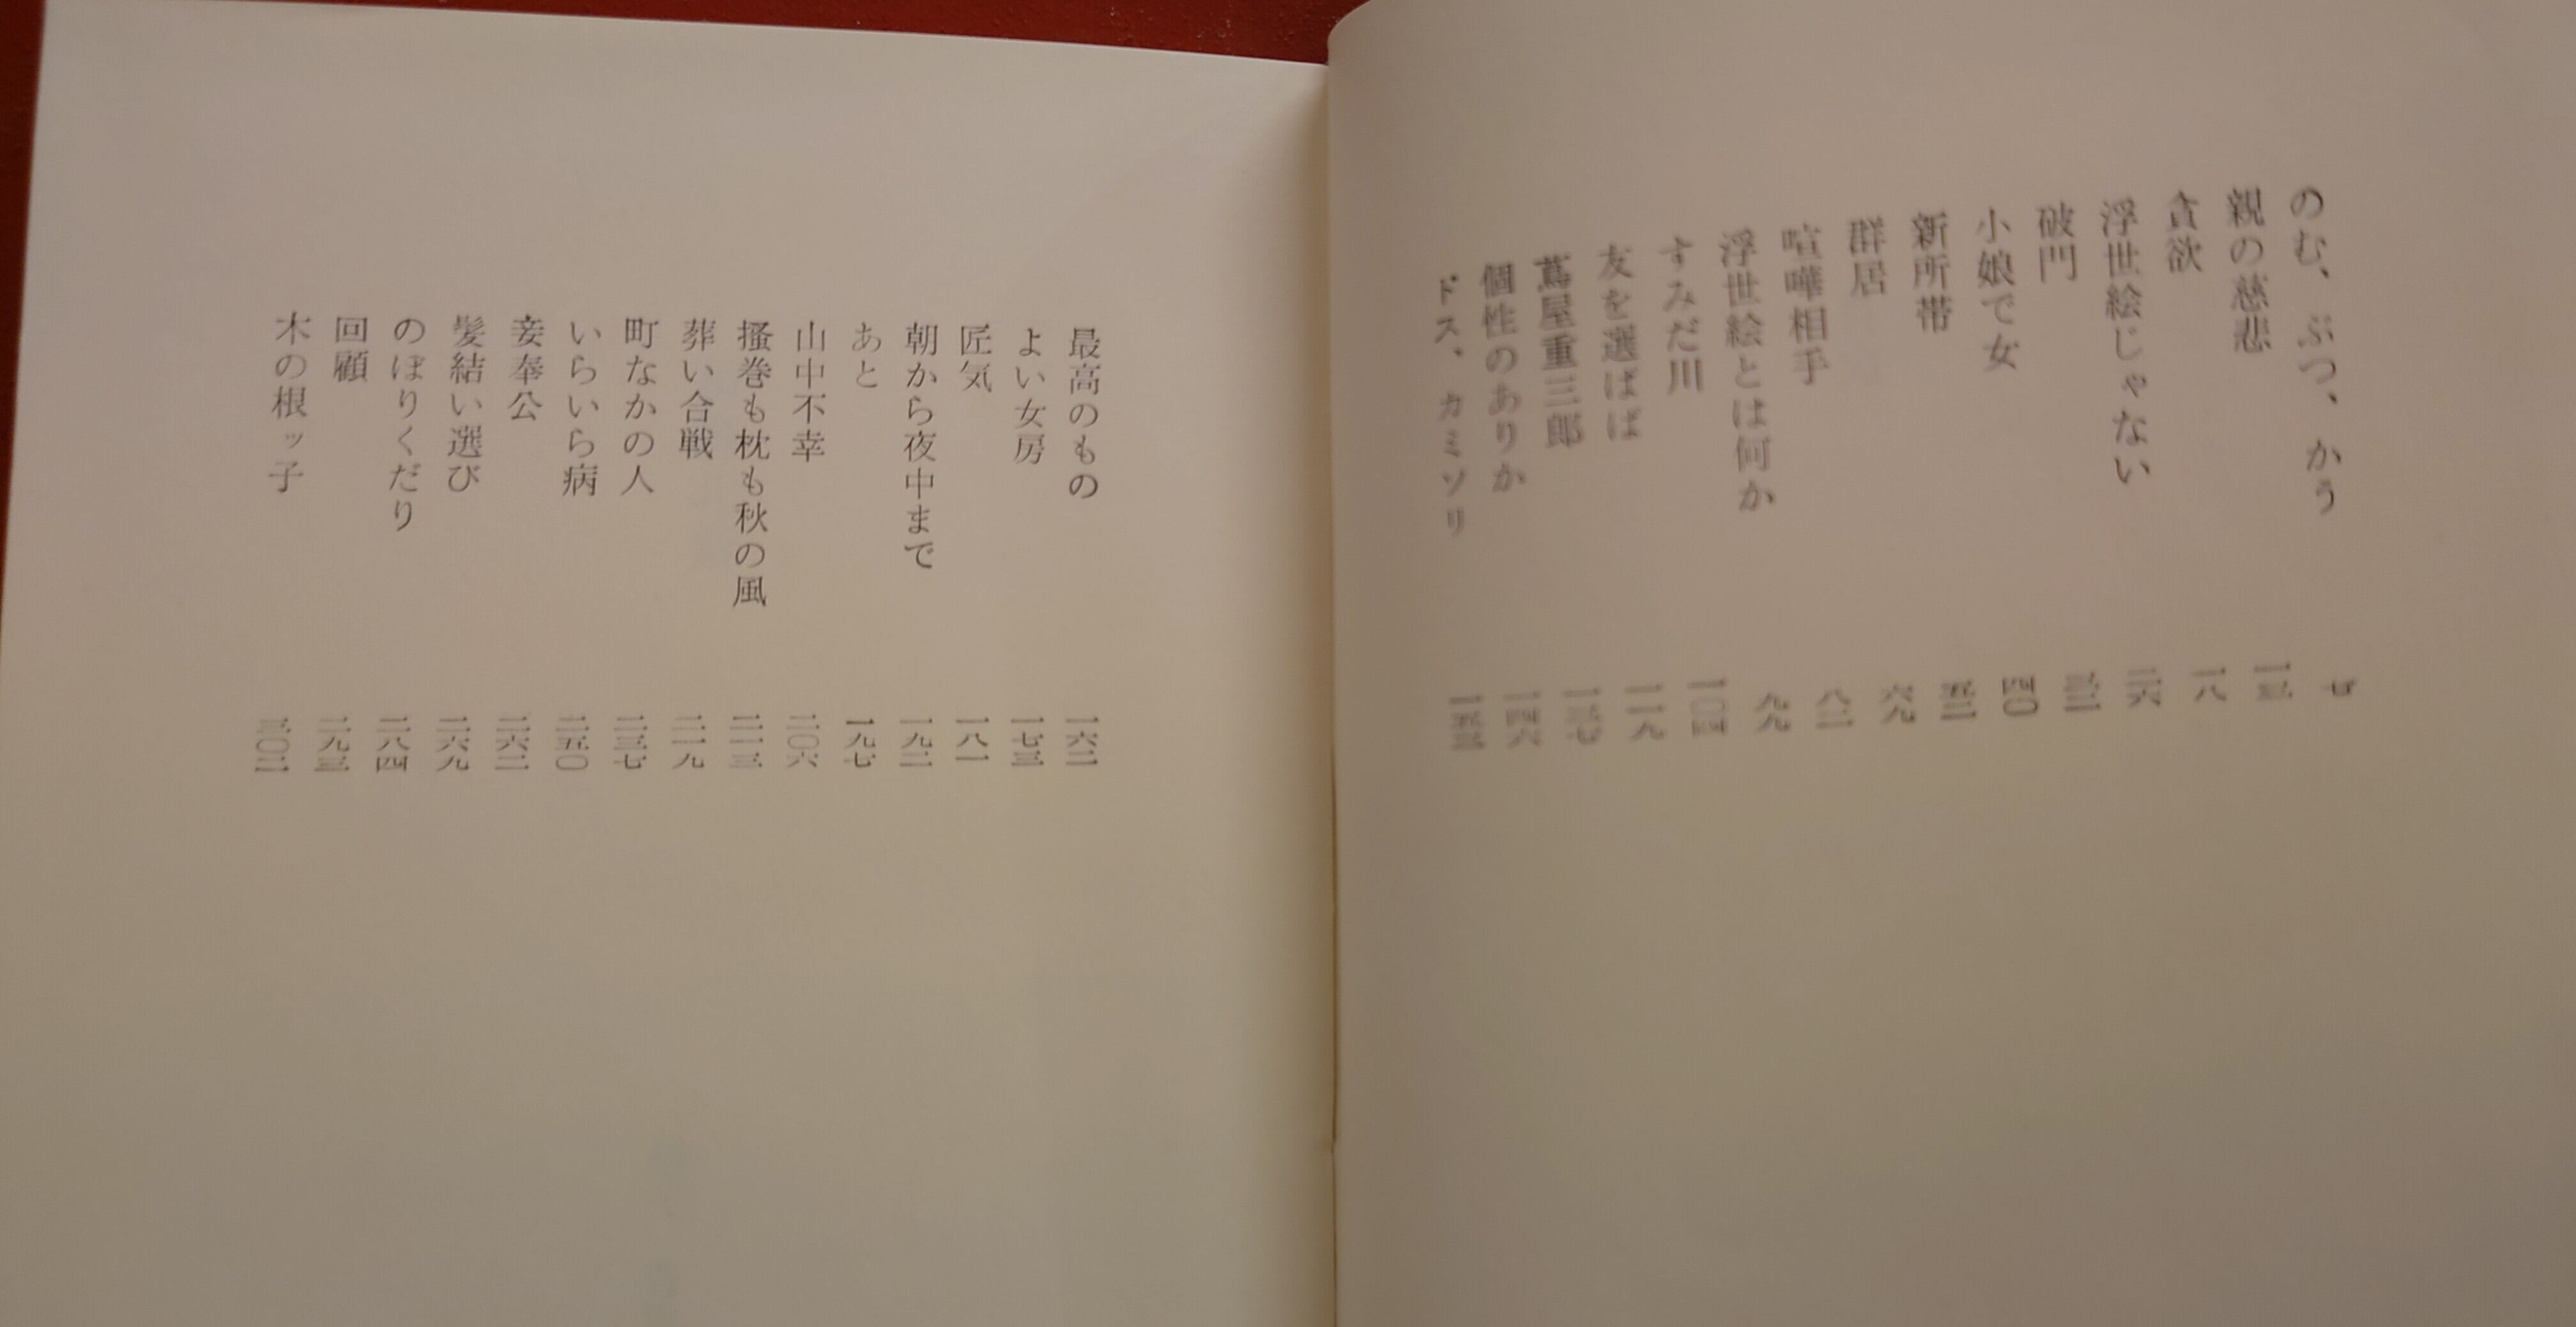 のむ、ぶつ、かう 七
親の慈悲 一三
貪欲 一八
浮世絵じゃない 二六
破門
小娘で女 四〇
新所帯
群居 六九
喧嘩相手 八二
浮世絵とは何か 九九
すみだ川 一〇四
友を選ばば 一一九
蔦屋重三郎 一三七
個性のありか 一四六
ドス、カミソリ 一五三
最高のもの 一六二
よい女房 一七三
匠気 一八一
朝から夜中まで 一九二
あと 一九七
山中不幸 二〇六
掻巻も枕も秋の風 二一三
葬い合戦
町なかの人 二三七
いらいら病 二五〇
妾奉公 二六二
髪結い選び 二六九
のぼりくだり 二八四
回顧 二九三
木の根ッ子 三〇二